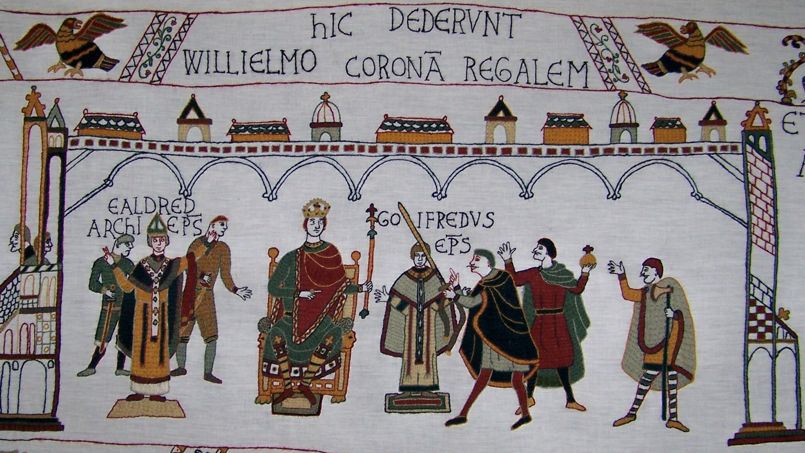 hIC DEDERVNT
WILLIELMO CORONĀ REGALEM
EALDRED
ARCHI EPS̄
GO IFREDVS
EPS̄
E